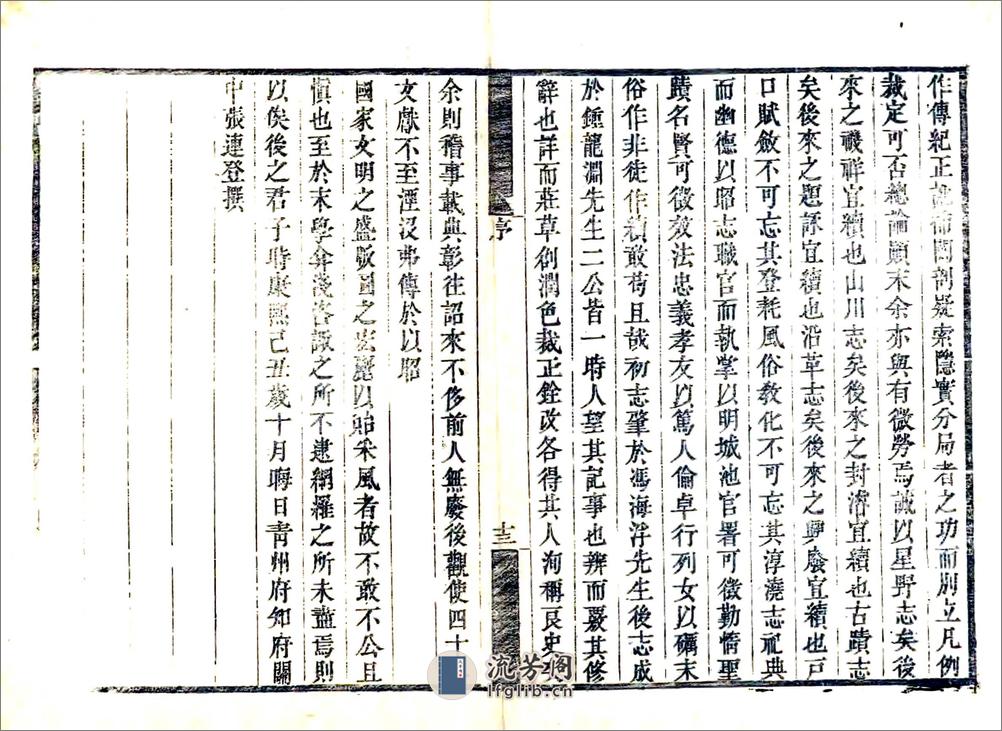 作傳紀正訛補闕剖疑索隱實分局者之功而別立凡例
裁定可否總論顛末余亦與有微勞焉誠以星野志矣後
來之禨祥宜續也山川志矣後來之封濬宜續也古蹟志
矣後來之題詠宜續也沿革志矣後來之興廢宜續也戸
口賦斂不可忘其登耗風俗教化不可忘其淳澆志祀典
而幽德以昭志職官而執掌以明城池官署可徵勤惰聖
蹟名賢可徵效法忠義孝友以篤人倫卓行列女以礪末
俗作非徒作續敢苟且哉初志肇於馮海浮先生後志成
於鍾龍淵先生二公皆一時人望其記事也辨而覈其修
辭也詳而莊草創潤色裁正銓改各得其人洵稱良史
序
十三
余則稽事載典彰往詔來不侈前人無廢後觀使四十
文獻不至湮沒弗傳於以昭
國家文明之盛版圖之宏麗以貽釆風者故不敢不公且
慎也至於末學弇淺咨諏之所不逮網羅之所未盡焉則
以俟後之君子時康熙己丑歲十月晦日靑州府知府關
中張連登撰
流芳阁
lfglib.cn